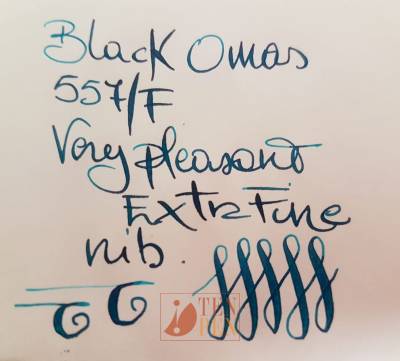 Black Omas
557/F
Very pleasant
Extra Fine
nib.
TEN
PEN